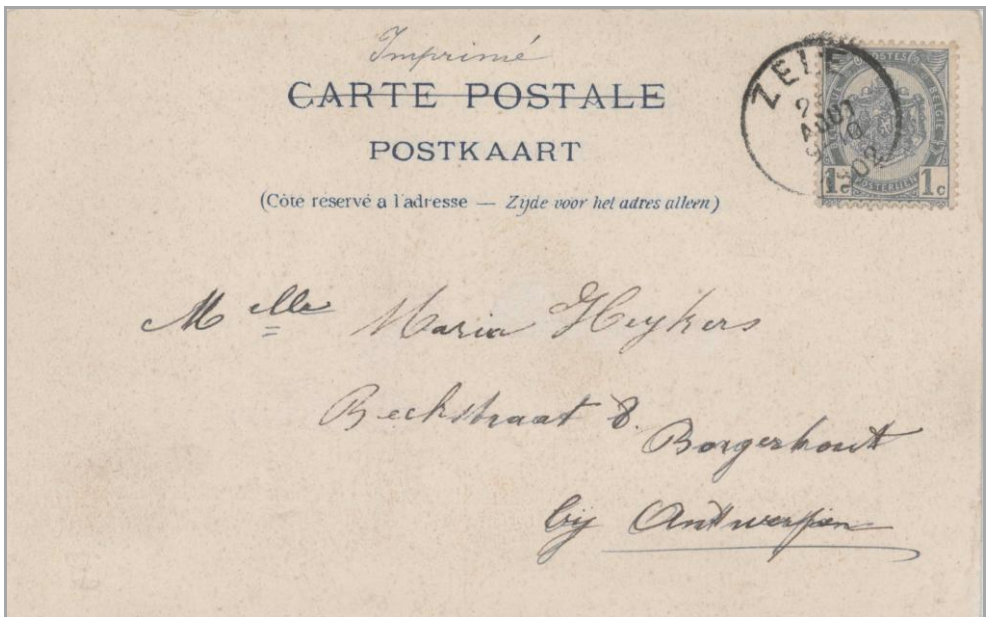 Imprimé
CARTE POSTALE
POSTKAART
(Côté réservé a l'adresse — Zijde voor het adres alleen)
ZELE
2
AOUT
10
02
POSTES
BELGIE
1c 1c
Melle Maria Heykers
Beckstraat 8.
Borgerhout
bij Antwerpen